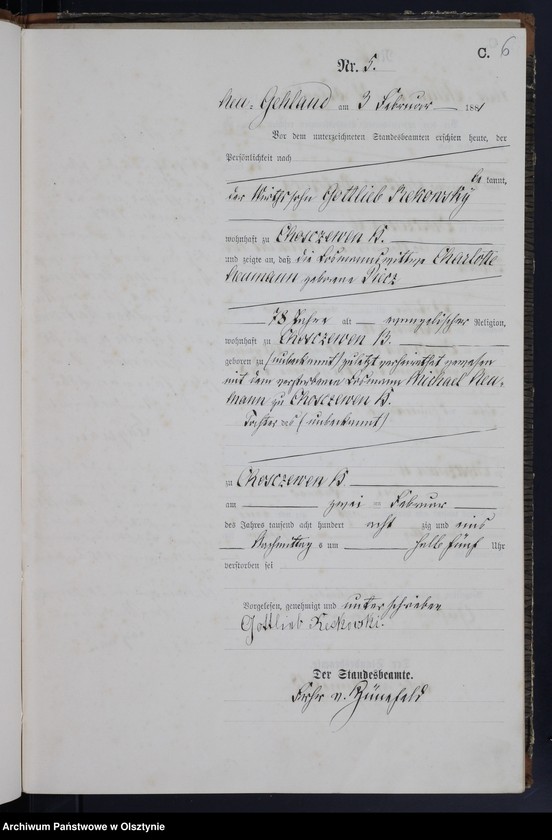 C. 6
Nr. 5.
Neu-Gehland am 3 Februar 1881
Vor dem unterzeichneten Standesbeamten erschien heute, der
Persönlichkeit nach
be kannt,
der Wirthssohn Gottlieb
wohnhaft zu Choszczewen B.
und zeigte an, daß die Losmannswittwe Charlotte
Neumann geborene
78 Jahre alt evangelischer Religion,
wohnhaft zu Choszczewen B.
geboren zu (unbekannt) zuletzt verheirathet gewesen
mit dem verstorbenen Losmann Michael Neu-
mann zu Choszczewen B.
Tochter des (unbekannt)
zu Choszczewen B.
am zwei Februar
des Jahres tausend acht hundert acht zig und eins
Nachmittag s um halb fünf Uhr
verstorben sei
Vorgelesen, genehmigt und unterschrieben
Gottlieb
Der Standesbeamte.
Frhr v.
Archiwum Państwowe w Olsztynie